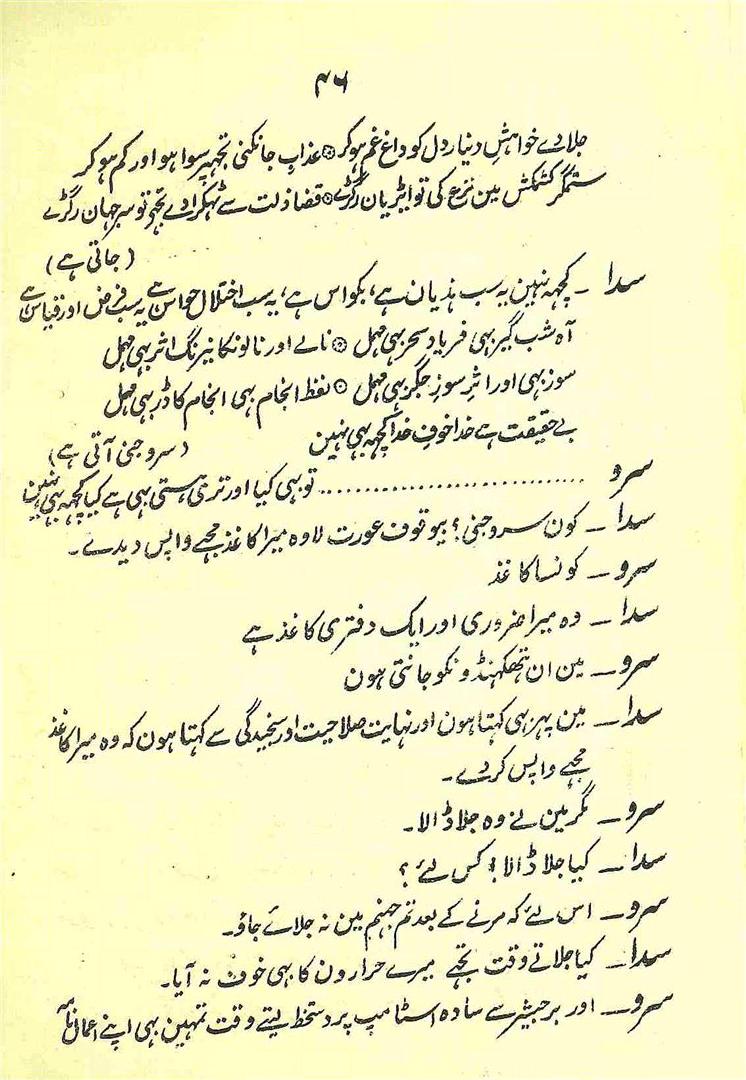 ۴۶
جلادے خواہشِ دنیا ردل کو داغ غم ہوکر ۞ عذابِ جانکنی تجھپر سوا ہو اور کم ہو کر
ستمگر کشمکش مین نزع کی تو ایڑیان رگڑے ۞ قضا ذلت سے ٹہکرا دے تجھے تو سر جہان رگڑے
(جاتی ہے)
سدا ۔ کچہہ نہین یہ سب ہذیان ہے، بکواس ہے، یہ سب اختلال حواس ہے یہ سب فرض اور قیاس ہے
آہ شب گیر بہی فریادِ سحر بہی مہمل ۞ نالے اور نالونکا نیرنگ اثر بہی مہمل
سوز بہی اور اثرِ سوزِ جگر بہی مہمل ۞ لفظ انجام بہی انجام کا ڈر بہی مہمل
بے حقیقت ہے خدا خوفِ خدا کچہہ بہی نہین
(سروجنی آتی ہے)
سرو ۔ ............................ تو بہی کیا اور تری ہستی بہی ہے کیا کچہہ بہی نہین
سدا ۔ کون سروجنی؟ بیوقوف عورت لا وہ میرا کاغذ مجہے واپس دیدے ۔
سرو ۔ کونسا کاغذ
سدا ۔ وہ میرا ضروری اور ایک دفتری کاغذ ہے
سرو ۔ مین ان ہتھکہنڈونکو جانتی ہون
سدا ۔ مین پہر بہی کہتا ہون اور نہایت صلاحیت اور سنجیدگی سے کہتا ہون کہ وہ میرا کاغذ
مجہے واپس کردے ۔
سرو ۔ مگر مین نے وہ جلا ڈالا ۔
سدا ۔ کیا جلا ڈالا! کس لئے؟
سرو ۔ اس لئے کہ مرنے کے بعد تم جہنم مین نہ جلائے جاؤ ۔
سدا ۔ کیا جلاتے وقت تجہے میرے حرارون کا بہی خوف نہ آیا ۔
سرو ۔ اور برجیشر سے سادہ اسٹامپ پر دستخط لیتے وقت تمہین بہی اپنے اعمالنامہ